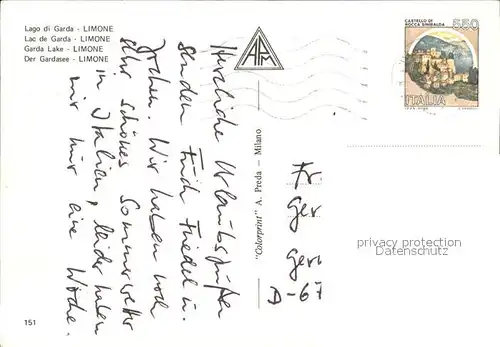 Lago di Garda - LIMONE
Lac de Garda - LIMONE
Garda Lake - LIMONE
Der Gardasee - LIMONE
APM
CASTELLO DI
ROCCA SINIBALDA
550
ITALIA
Herzliche Urlaubsgrüße
senden Euch Friedel u.
Jochen. Wir haben noch
sehr schönes Sommerwetter
in Italien, leider haben
wir nur eine Woche.
"Colorprint" A. Preda — Milano
Fr.
Ger
Ger
D-67
privacy protection
Datenschutz
151